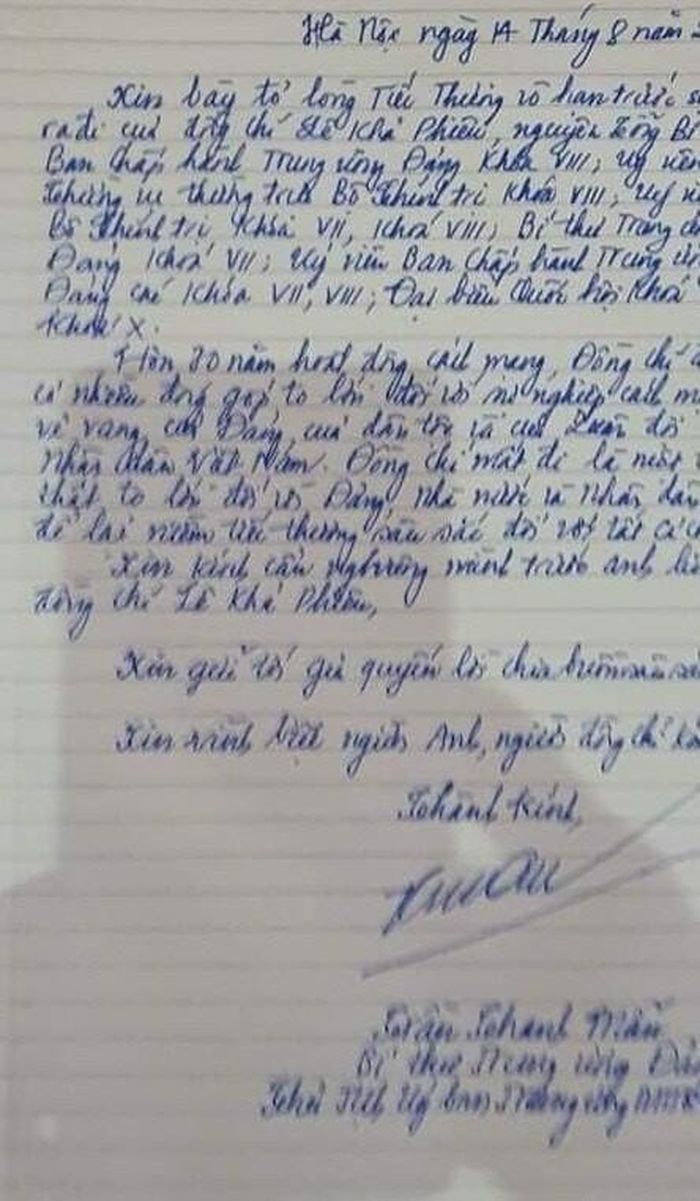 Hà Nội ngày 14 Tháng 8 năm
Xin bày tỏ lòng Tiếc Thương vô hạn trước
ra đi của đồng chí Lê Khả Phiêu, nguyên Tổng Bí
Ban Chấp hành Trung ương Đảng Khóa VIII; Uỷ viên
Thường vụ thường trực Bộ Chính trị Khóa VIII; Uỷ
Bộ Chính trị Khóa VII, Khóa VIII; Bí thư Trung
Đảng Khóa VII; Uỷ viên Ban Chấp hành Trung ương
Đảng các Khóa VII, VIII; Đại biểu Quốc hội Khoá
Khoá X.
Hơn 70 năm hoạt động cách mạng, Đồng chí
có nhiều đóng góp to lớn đối với sự nghiệp cách
vẻ vang của Đảng, của dân tộc và của Quân đội
Nhân dân Việt Nam. Đồng chí mất đi là một
thất to lớn đối với Đảng, Nhà nước và Nhân dân
để lại niềm tiếc thương sâu sắc đối với tất cả
Xin kính cẩn nghiêng mình trước anh
đồng chí Lê Khả Phiêu,
Xin gửi tới gia quyến lời chia buồn sâu
Xin vĩnh biệt người Anh, người đồng chí
Thành kính,
Trần Thanh Mẫn
Bí thư Trung ương Đảng
Chủ Tịch Uỷ ban Trung ương